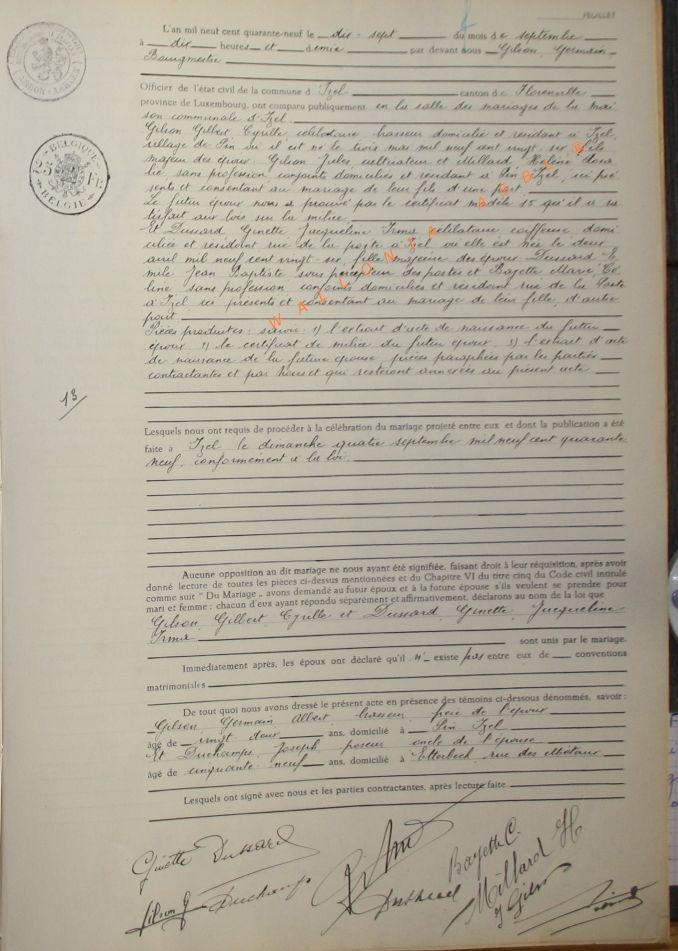 FEUILLET
L'an mil neuf cent quarante-neuf le dix-sept du mois de septembre
à dix heures et demie par devant nous Gilson, Germain
Bourgmestre
Officier de l'état civil de la commune d'Izel canton de Florenville
province de Luxembourg, ont comparu publiquement en la salle des mariages de la mai
son communale d'Izel
Gilson Gilbert Cyrille célibataire brasseur domicilié et résidant à Izel,
village de Pin où il est né le trois mai mil neuf cent vingt-six fils
majeur des époux: Gilson Jules cultivateur et Millard, Hélène
lie sans profession conjoints domiciliés et résidant à Pin Izel, ici pré
sents et consentant au mariage de leur fils d'une part
Le futur époux nous a prouvé par le certificat modèle 15 qu'il a sa
tisfait aux lois sur la milice
Et Dussard Ginette Jacqueline Irma célibataire coiffeuse domi
ciliée et résidant rue de la poste à Izel où elle est née le deux
avril mil neuf cent vingt-six, fille majeure des époux Dussard E
mile Jean Baptiste sous percepteur des postes et Bayette Marie Cé
line sans profession conjoints domiciliés et résidant rue de la Poste
à Izel ici présents et consentant au mariage de leur fille, d'autre
part
Pièces produites: savoir: 1) l'extrait d'acte de naissance du futur
époux 2) le certificat de milice du futur époux. 3) l'extrait d'acte
de naissance de la future épouse pièces paraphées par les parties
contractantes et par nous et qui resteront annexées au présent acte
13
Lesquels nous ont requis de procéder à la célébration du mariage projeté entre eux et dont la publication a été
faite à Izel le dimanche quatre septembre mil neuf cent quarante
neuf, conformément à la loi.
Aucune opposition au dit mariage ne nous ayant été signifiée, faisant droit à leur réquisition, après avoir
donné lecture de toutes les pièces ci-dessus mentionnées et du Chapitre VI du titre cinq du Code civil intitulé
comme suit " Du Mariage „ avons demandé au futur époux et à la future épouse s'ils veulent se prendre pour
mari et femme ; chacun d'eux ayant répondu séparément et affirmativement, déclarons au nom de la loi que
Gilson, Gilbert Cyrille et Dussard, Ginette, Jacqueline
Irma sont unis par le mariage.
Immédiatement après, les époux ont déclaré qu'il n' existe pas entre eux de conventions
matrimoniales
De tout quoi nous avons dressé le présent acte en présence des témoins ci-dessous dénommés, savoir :
Gilson Germain Albert brasseur frère de l'époux
âgé de vingt deux ans, domicilié à Pin Izel
Et Duchamps, Joseph, poseur oncle de l'épouse
âgé de cinquante neuf ans, domicilié à Etterbeck rue des
Lesquels ont signé avec nous et les parties contractantes, après lecture faite
Ginette Dussard
Gilson G Duchamps Dussard Bayette C.
Millard H
J Gilson
BELGIQUE
5 FR
BELGIE
WALLONIA ASBL